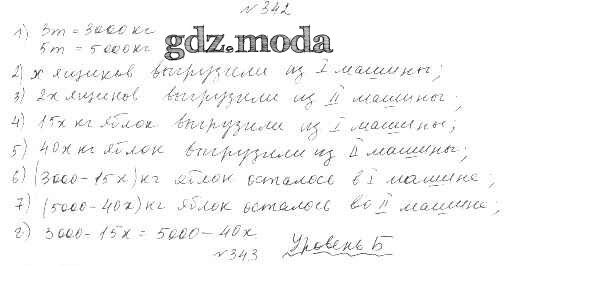 №342
1) 3т = 3000 кг
5т = 5000 кг
gdz.moda
2) x ящиков выгрузили из I машины;
3) 2x ящиков выгрузили из II машины;
4) 15x кг яблок выгрузили из I машины;
5) 40x кг яблок выгрузили из II машины;
6) (3000-15x) кг яблок осталось в I машине;
7) (5000-40x) кг яблок осталось во II машине;
г) 3000-15x = 5000-40x
№343 Уровень Б